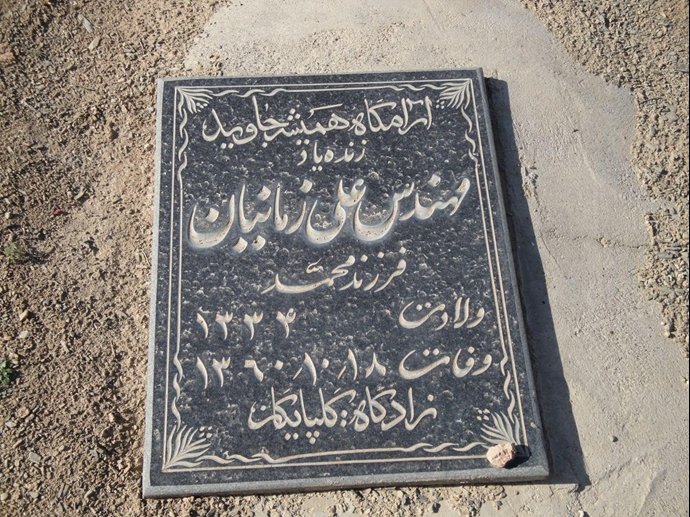 آرامگاه همیشه جاوید
زنده یاد
مهندس علی زمانیان
فرزند محمد
ولادت ۱۳۳۴
وفات ۱۳۶۰٫۱۰٫۱۸
زادگاه: گلپایگان